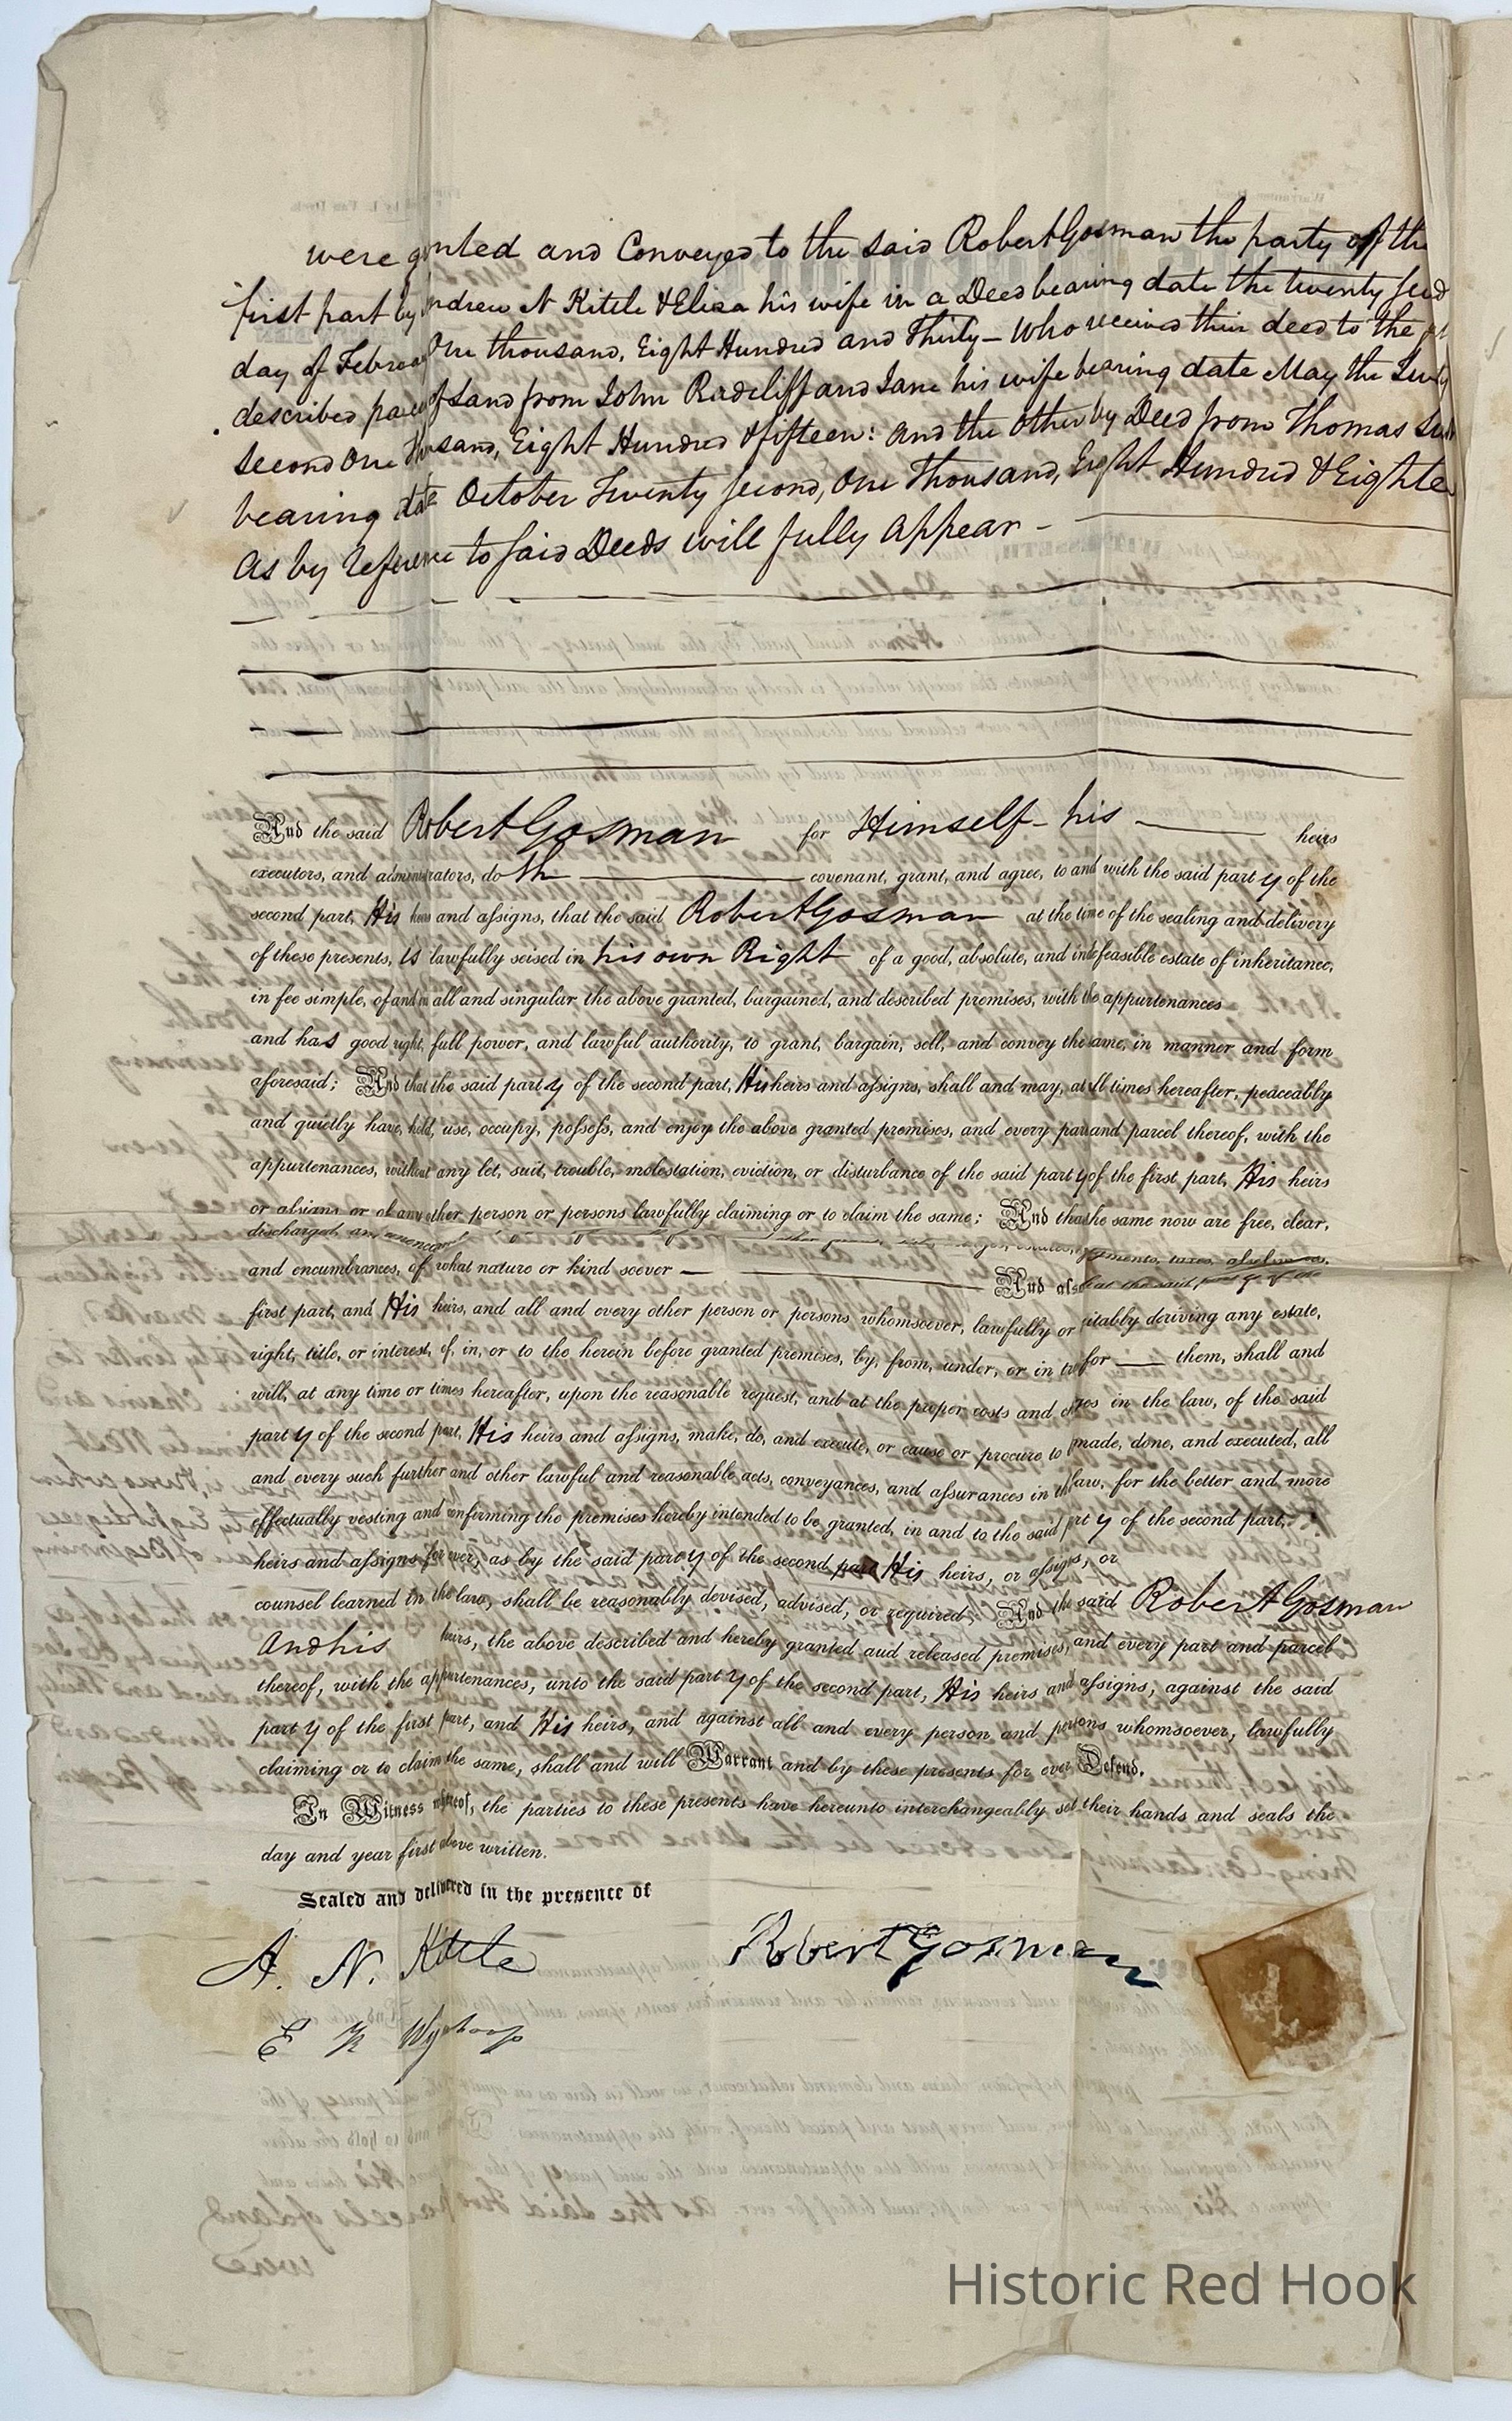 were granted and Conveyed to the said Robert Gosman the party off the
first part by Andrew N Kittle & Eliza his wife in a Deed bearing date the twenty
day of One thousand, Eight Hundred and Thirty — Who received their deed to the
described of Land from John Radcliff and Jane his wife bearing date May the
Second One thousand, Eight Hundred & fifteen: and the Other by Deed from Thomas
bearing date October Twenty second, One Thousand, Eight Hundred &
As by Reference to said Deeds will fully Appear —
And the said Robert Gosman for Himself — his heirs
executors, and administrators, doth covenant, grant, and agree, to and with the said party of the
second part, His heirs and assigns, that the said Robert Gosman at the time of the sealing and delivery
of these presents, is lawfully seised in his own Right of a good, absolute, and indefeasible estate of inheritance,
in fee simple, of and in all and singular the above granted, bargained, and described premises, with the appurtenances
and has good right, full power, and lawful authority, to grant, bargain, sell, and convey the same, in manner and form
aforesaid; And that the said party of the second part, His heirs and assigns, shall and may, at all times hereafter, peaceably
and quietly have, hold, use, occupy, possess, and enjoy the above granted premises, and every part and parcel thereof, with the
appurtenances, without any let, suit, trouble, molestation, eviction, or disturbance of the said party of the first part, His heirs
or assigns or of any other person or persons lawfully claiming or to claim the same; And that the same now are free, clear,
discharged, and taxes,
and encumbrances, of what nature or kind soever — And also that the said party of the
first part, and His heirs, and all and every other person or persons whomsoever, lawfully or equitably deriving any estate,
right, title, or interest, of, in, or to the herein before granted premises, by, from, under, or in trust for — them, shall and
will, at any time or times hereafter, upon the reasonable request, and at the proper costs and charges in the law, of the said
party of the second part, His heirs and assigns, make, do, and execute, or cause or procure to be made, done, and executed, all
and every such further and other lawful and reasonable acts, conveyances, and assurances in the law, for the better and more
effectually vesting and confirming the premises hereby intended to be granted, in and to the said party of the second part,
heirs and assigns for ever, as by the said party of the second part His heirs, or assigns, or
counsel learned in the law, shall be reasonably devised, advised, or required; And the said Robert Gosman
And his heirs, the above described and hereby granted and released premises, and every part and parcel
thereof, with the appurtenances, unto the said party of the second part, His heirs and assigns, against the said
party of the first part, and His heirs, and against all and every person and persons whomsoever, lawfully
claiming or to claim the same, shall and will Warrant and by these presents for ever Defend.
In Witness whereof, the parties to these presents have hereunto interchangeably set their hands and seals the
day and year first above written.
Sealed and delivered in the presence of
A. N. Kittle
Robert Gosman
E K Wynkoop
Historic Red Hook